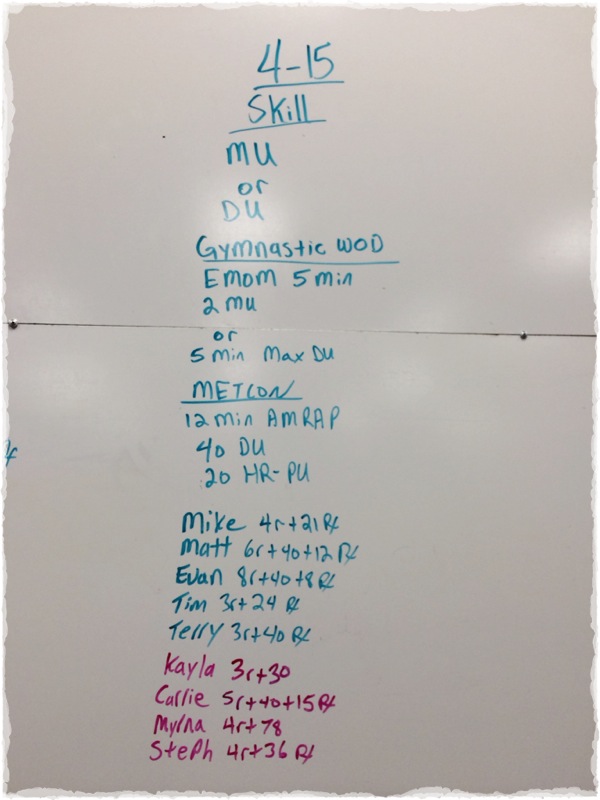 4-15
Skill
MU
or
DU
Gymnastic WOD
EMOM 5 min
2 mu
or
5 min Max DU
METCON
12 min AMRAP
40 DU
20 HR-PU
Mike 4r+21 Rx
Matt 6r+40+12 Rx
Evan 8r+40+8 Rx
Tim 3r+24 Rx
Terry 3r+40 Rx
Kayla 3r+30
Callie 5r+40+15 Rx
Myrna 4r+78
Steph 4r+36 Rx